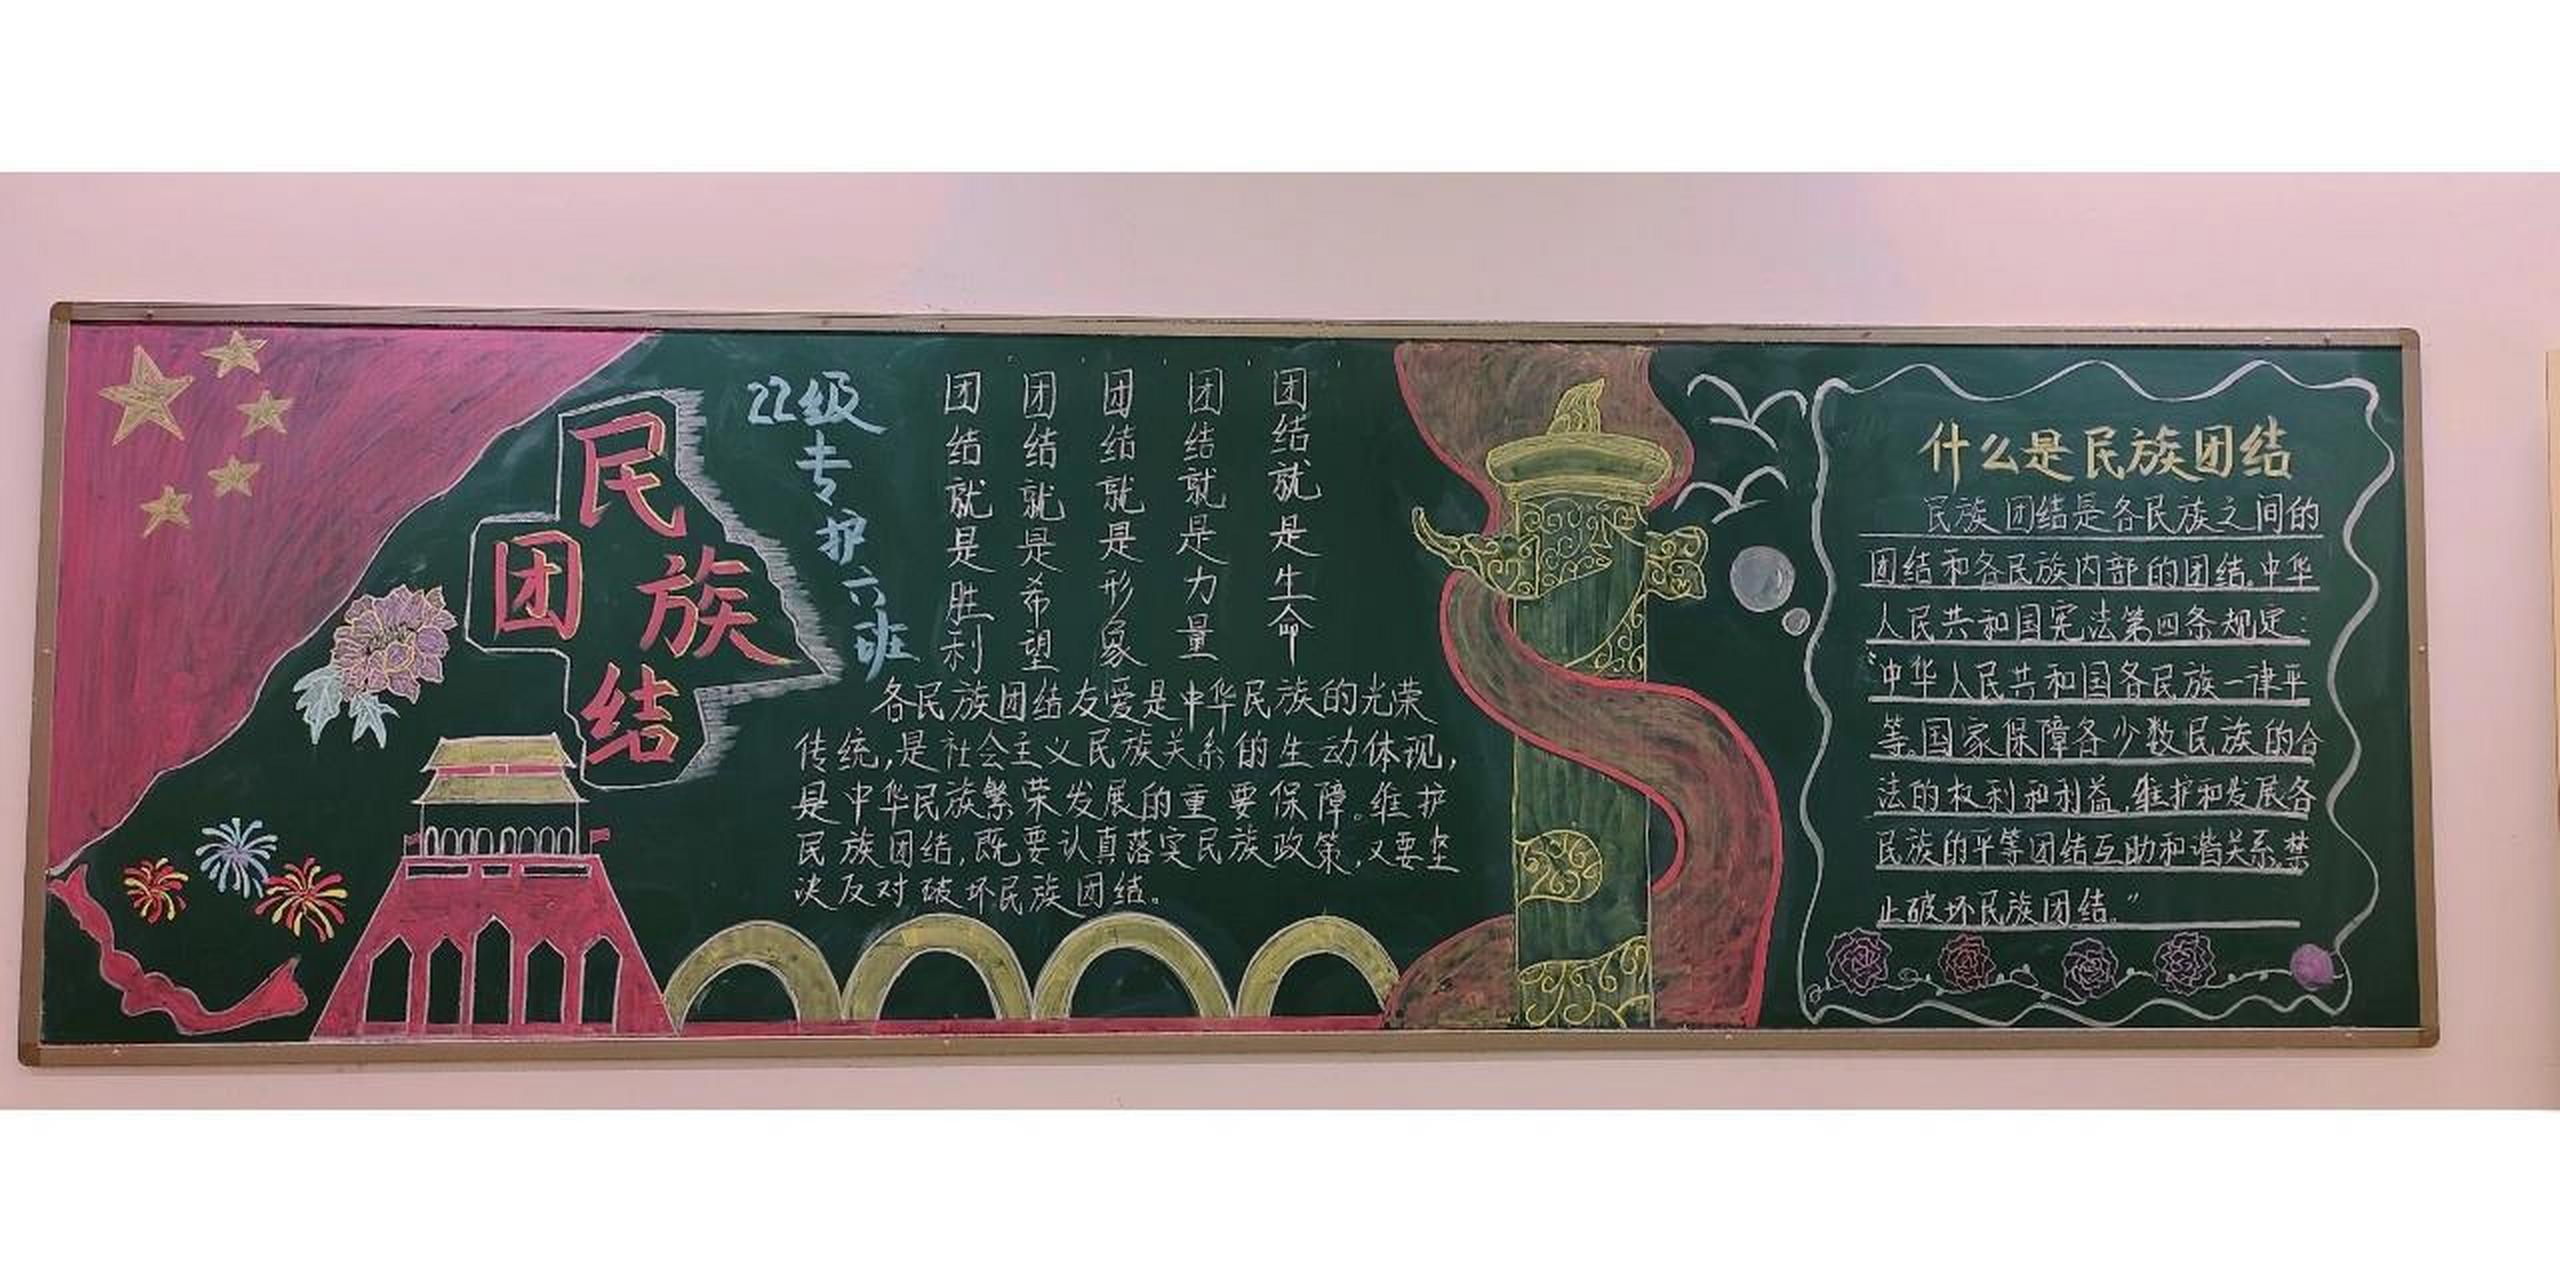 民族
团结
22级专护六班
团结就是胜利
团结就是希望
团结就是形象
团结就是力量
团结就是生命
各民族团结友爱是中华民族的光荣
传统,是社会主义民族关系的生动体现,
是中华民族繁荣发展的重要保障。维护
民族团结,既要认真落实民族政策,又要坚
决反对破坏民族团结。
什么是民族团结
民族团结是各民族之间的
团结和各民族内部的团结。中华
人民共和国宪法第四条规定:
“中华人民共和国各民族一律平
等。国家保障各少数民族的合
法的权利和利益,维护和发展各
民族的平等团结互助和谐关系。禁
止破坏民族团结。”